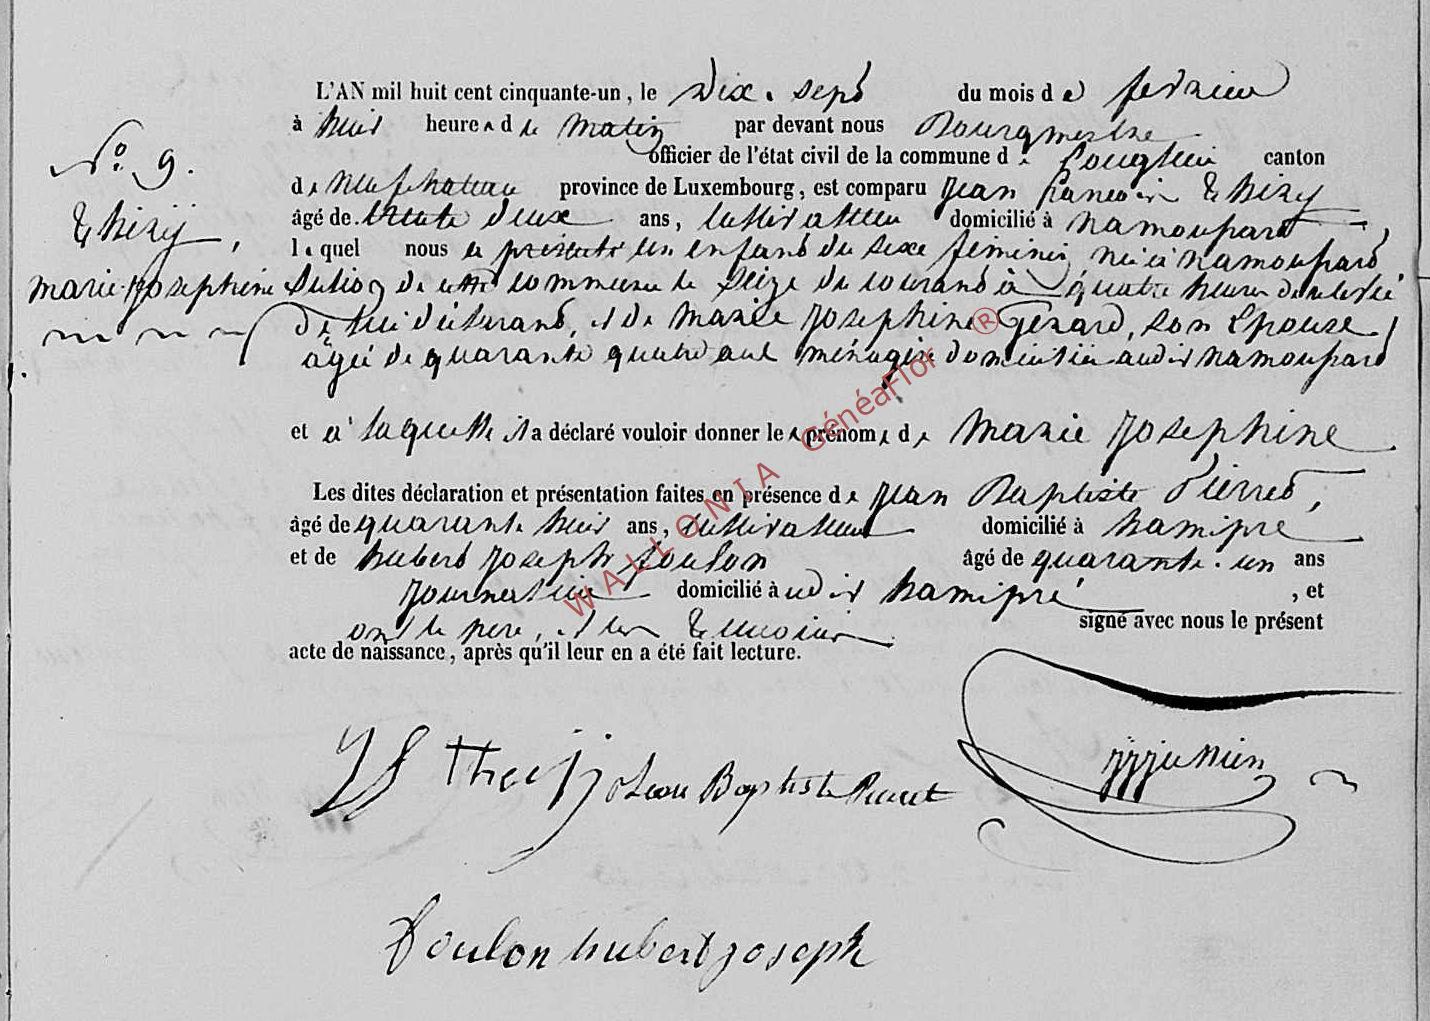 L'AN mil huit cent cinquante-un, le dix-sept du mois de fevrier
à huit heures du matin par devant nous Bourgmestre
officier de l'état civil de la commune de Longlier canton
de Neufchateau province de Luxembourg, est comparu Jean francois Thiry
âgé de trente deux ans, cultivateur domicilié à namoussart,
lequel nous a présenté un enfant du sexe feminin, né à namoussart
Section de cette commune le seize du courant à quatre heures de relevée
de lui déclarant, et de Marie Josephine Gerard, son Epouse,
âgée de quarante quatre ans ménagère domiciliée audit namoussart
N° 9.
Thirÿ,
marie-Josephine
et à laquelle il a déclaré vouloir donner les prénoms de Marie Josephine
Les dites déclaration et présentation faites en présence de Jean Baptiste Pierret,
âgé de quarante huit ans, cultivateur domicilié à hamipré
et de hubert Joseph Toulon âgé de quarante-un ans
Journalier domicilié audit hamipré, et
ont le pere, et les temoins signé avec nous le présent
acte de naissance, après qu'il leur en a été fait lecture.
Jean Baptiste Pierret
Toulon hubert joseph
WALLONIA GénéaFlor ®